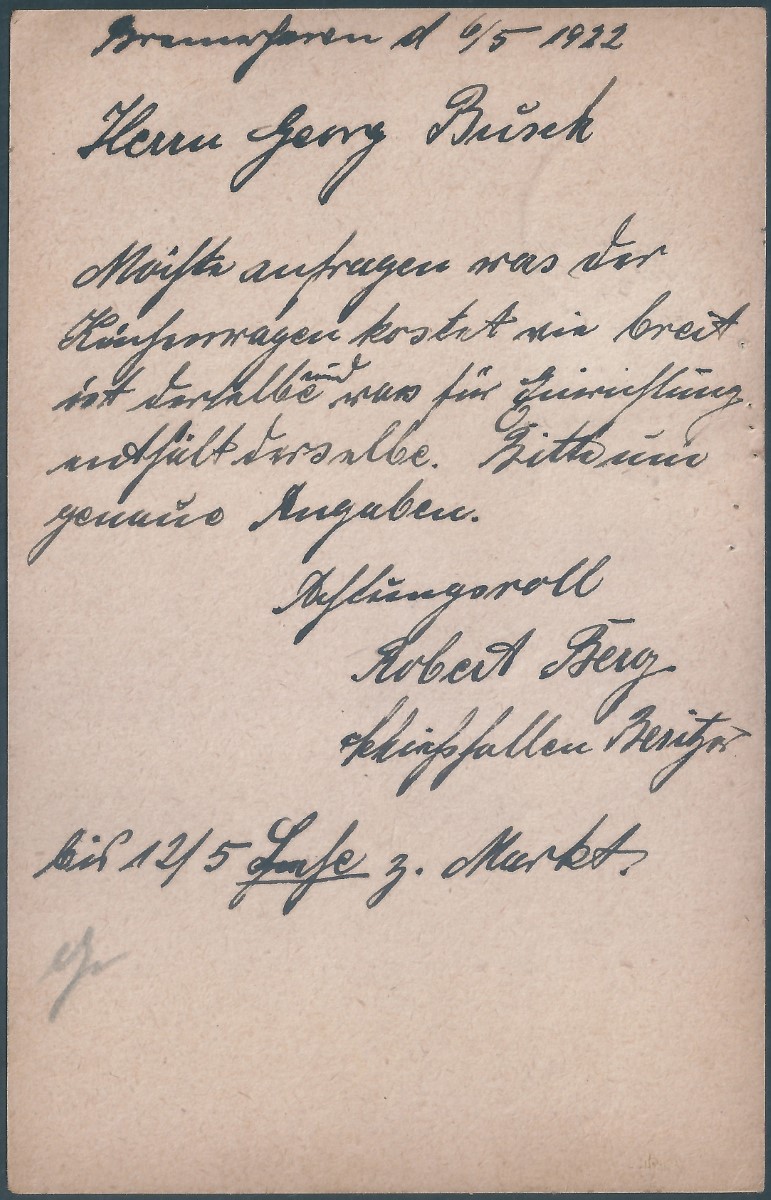 Bremerhaven d 6/5 1922
Herrn Georg Busch
Möchte anfragen was der
Küchenwagen kostet wie breit
ist derselbe und was für Einrichtung
enthält derselbe. Bitte um
genaue Angaben.
Achtungsvoll
Robert Berg
Schiesshallen Besitzer
bis 12/5 z. Markt.